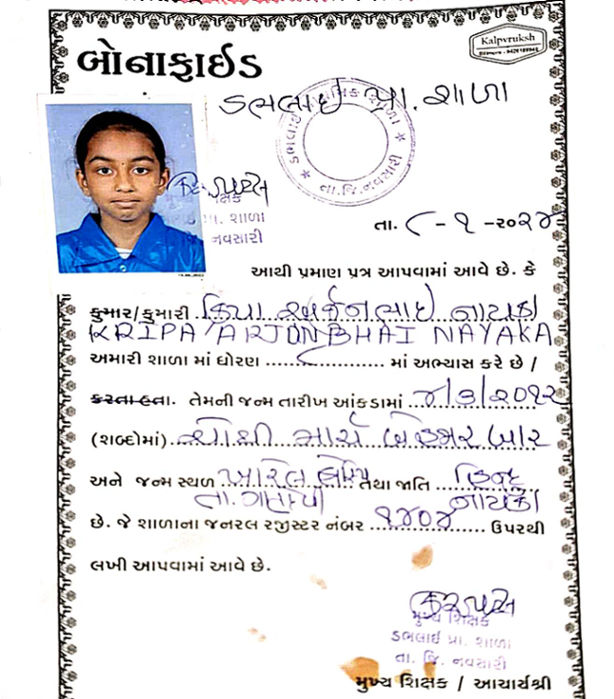 બોનાફાઇડ
Kalpvruksh
ડાભલાઈ પ્રા. શાળા
પ્રા. શાળા
નવસારી
તા. ૮-૧-૨૦૨૪
આથી પ્રમાણ પત્ર આપવામાં આવે છે. કે
કુમાર/કુમારી ક્રિપા અર્જુનભાઈ નાયકા
KRIPA ARJUNBHAI NAYAKA
અમારી શાળા માં ધોરણ ૮ માં અભ્યાસ કરે છે /
કરતા હતા. તેમની જન્મ તારીખ આંકડામાં ૪/૩/૨૦૧૨
(શબ્દોમાં) ચોથી માર્ચ બેહજાર બાર
અને જન્મ સ્થળ ખારેલ તથા જાતિ હિન્દુ
તા. ગણદેવી નાયકા
છે. જે શાળાના જનરલ રજીસ્ટર નંબર ૧૪૦૪ ઉપરથી
લખી આપવામાં આવે છે.
મુખ્ય શિક્ષક
ડભલાઈ પ્રા. શાળા
તા. જિ. નવસારી
મુખ્ય શિક્ષક / આચાર્યશ્રી